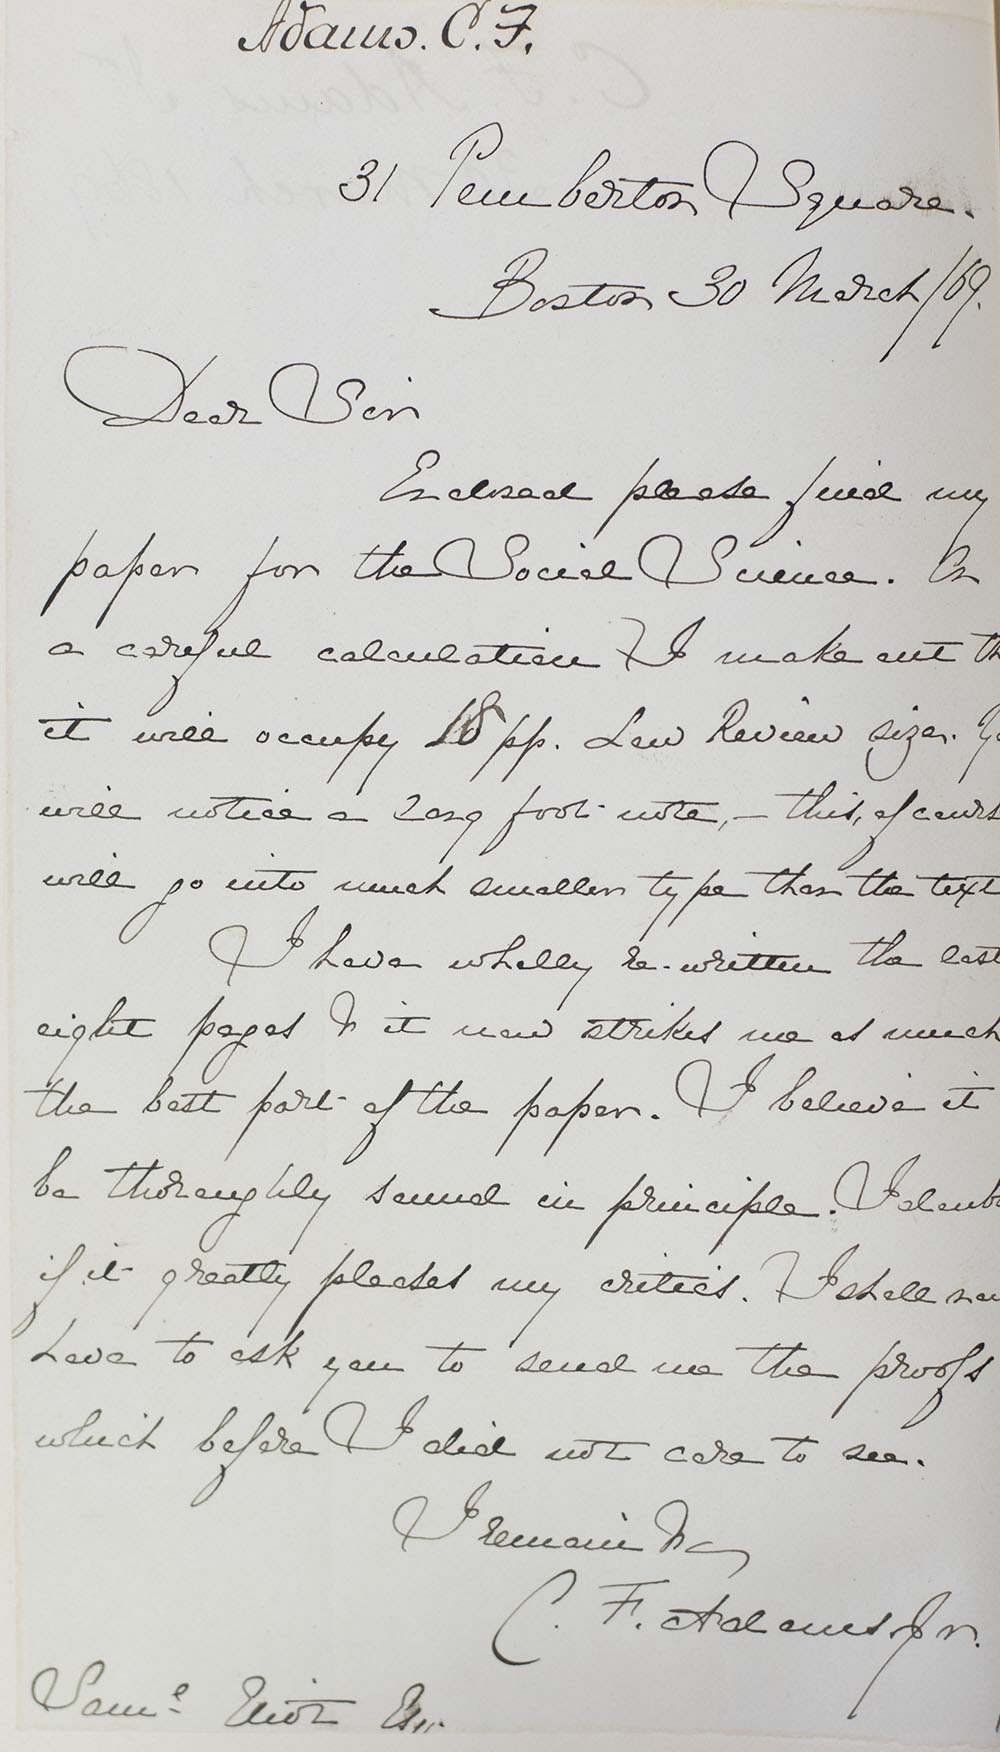 Adams. C. F.
31 Pemberton Square.
Boston 30 March /69.
Dear Sir
Enclosed please find my
paper for the Social Science. On
a careful calculation I make out th
it will occupy 18 pp. Law Review size. Yo
will notice a long foot-note, — this, of cours
will go into much smaller type than the text
I have wholly re-written the last
eight pages & it now strikes me as much
the best part of the paper. I believe it
be thoroughly sound in principle. I doub
if it greatly pleases my critics. I shall now
have to ask you to send me the proofs
which before I did not care to see.
I remain &c
C. F. Adams Jr.
Saml Eliot Esq.